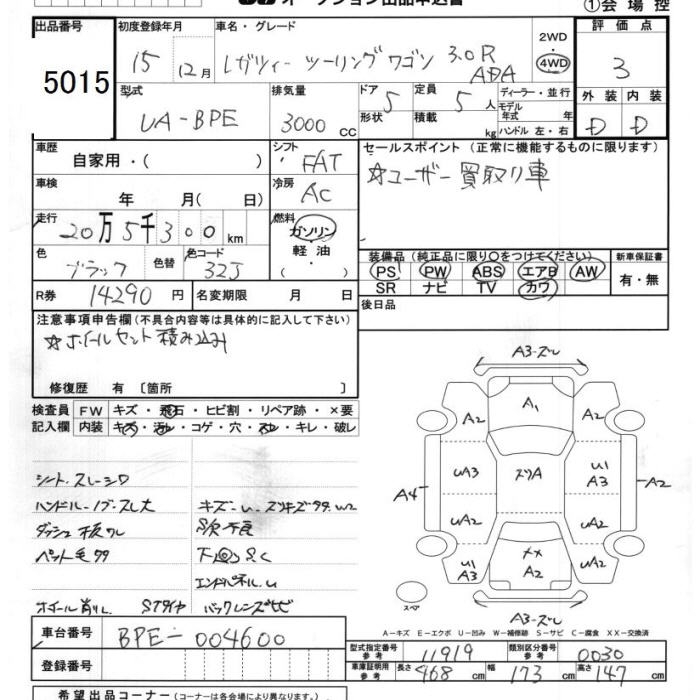 オークション出品申込書
①会場控
出品番号
5015
初度登録年月
15 12月
車名・グレード
レガツィー ツーリングワゴン 3.0R
ADA
2WD
4WD
評価点
3
外装 内装
D D
型式
UA-BPE
排気量
3000 CC
ドア 5
形状
定員 5人
積載 kg
ディーラー・並行
モデル年式 年
ハンドル 左・右
車歴
自家用・( )
シフト
FAT
車検
年 月( 日)
冷房
AC
走行
20万5千300km
燃料
ガソリン
軽油
・( )
色
ブラック
色替
色コード
32J
R券 14290円
名変期限 月 日
セールスポイント (正常に機能するものに限ります)
☆ユーザー買取り車
装備品(純正品に限り○をつけてください)
PS PW ABS エアB AW
SR ナビ TV カワ
新車保証書
有・無
後日品
注意事項申告欄(不具合内容等は具体的に記入して下さい)
☆ホイールセット積み込み
修復歴 有〔箇所 〕
検査員記入欄
FW キズ・飛石・ヒビ割・リペア跡・×要
内装 キズ・汚レ・コゲ・穴・スレ・キレ・破レ
シート.スレ・シワ
ハンドル・ノブ・スレ大
ダッシュ
ペット毛
ホイール削レ STタイヤ
下回サビ
エンドパネル.u
バックレンズヒビ
A3-ズレ
A1
A2 A2
UA3 ズリA U1 A3
A4 A2
UA2 UA2
U1 A3 ×× A2 UA2
スペア
A3-ズレ
A-キズ E-エクボ U-凹み W-補修跡 S-サビ C-腐食 XX-交換済
車台番号 BPE-004600
登録番号
型式指定番号 参考 11919
類別区分番号 参考 0030
車庫証明用 参考 長さ 468cm 幅 173cm 高さ 147cm
希望出品コーナー(コーナーは各会場により異なります。)